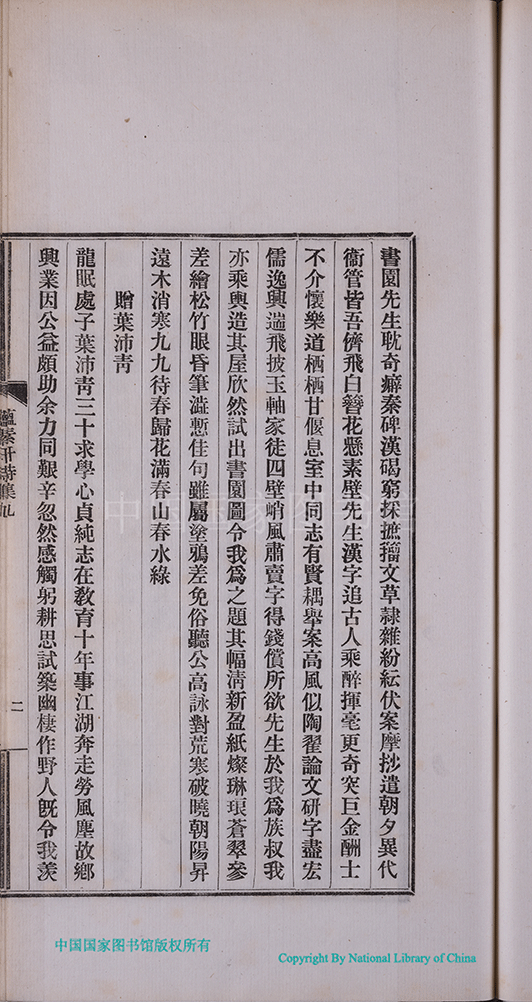 書園先生耽奇癖秦碑漢碣窮採摭籀文草隸雜紛紜伏案摩抄遣朝夕異代
衞管皆吾儕飛白簪花懸素壁先生漢字追古人乘醉揮毫更奇突巨金酬士
不介懷樂道栖栖甘偃息室中同志有賢耦舉案高風似陶翟論文研字盡宏
儒逸興遄飛披玉軸家徒四壁蛸風肅賣字得錢償所欲先生於我爲族叔我
亦乘輿造其屋欣然試出書園圖令我爲之題其幅淸新盈紙燦琳琅蒼翠參
差繪松竹眼昏筆澁慙佳句雖屬塗鴉差免俗聽公高詠對荒寒破曉朝陽昇
遠木消寒九九待春歸花滿春山春水綠
贈葉沛靑
龍眠處子葉沛靑三十求學心貞純志在敎育十年事江湖奔走勞風塵故鄉
興業因公益頗助余力同艱辛忽然感觸躬耕思試築幽棲作野人旣令我羨
蘊素軒詩集九
二
中国国家图书馆
中国国家图书馆版权所有
Copyright By National Library of China